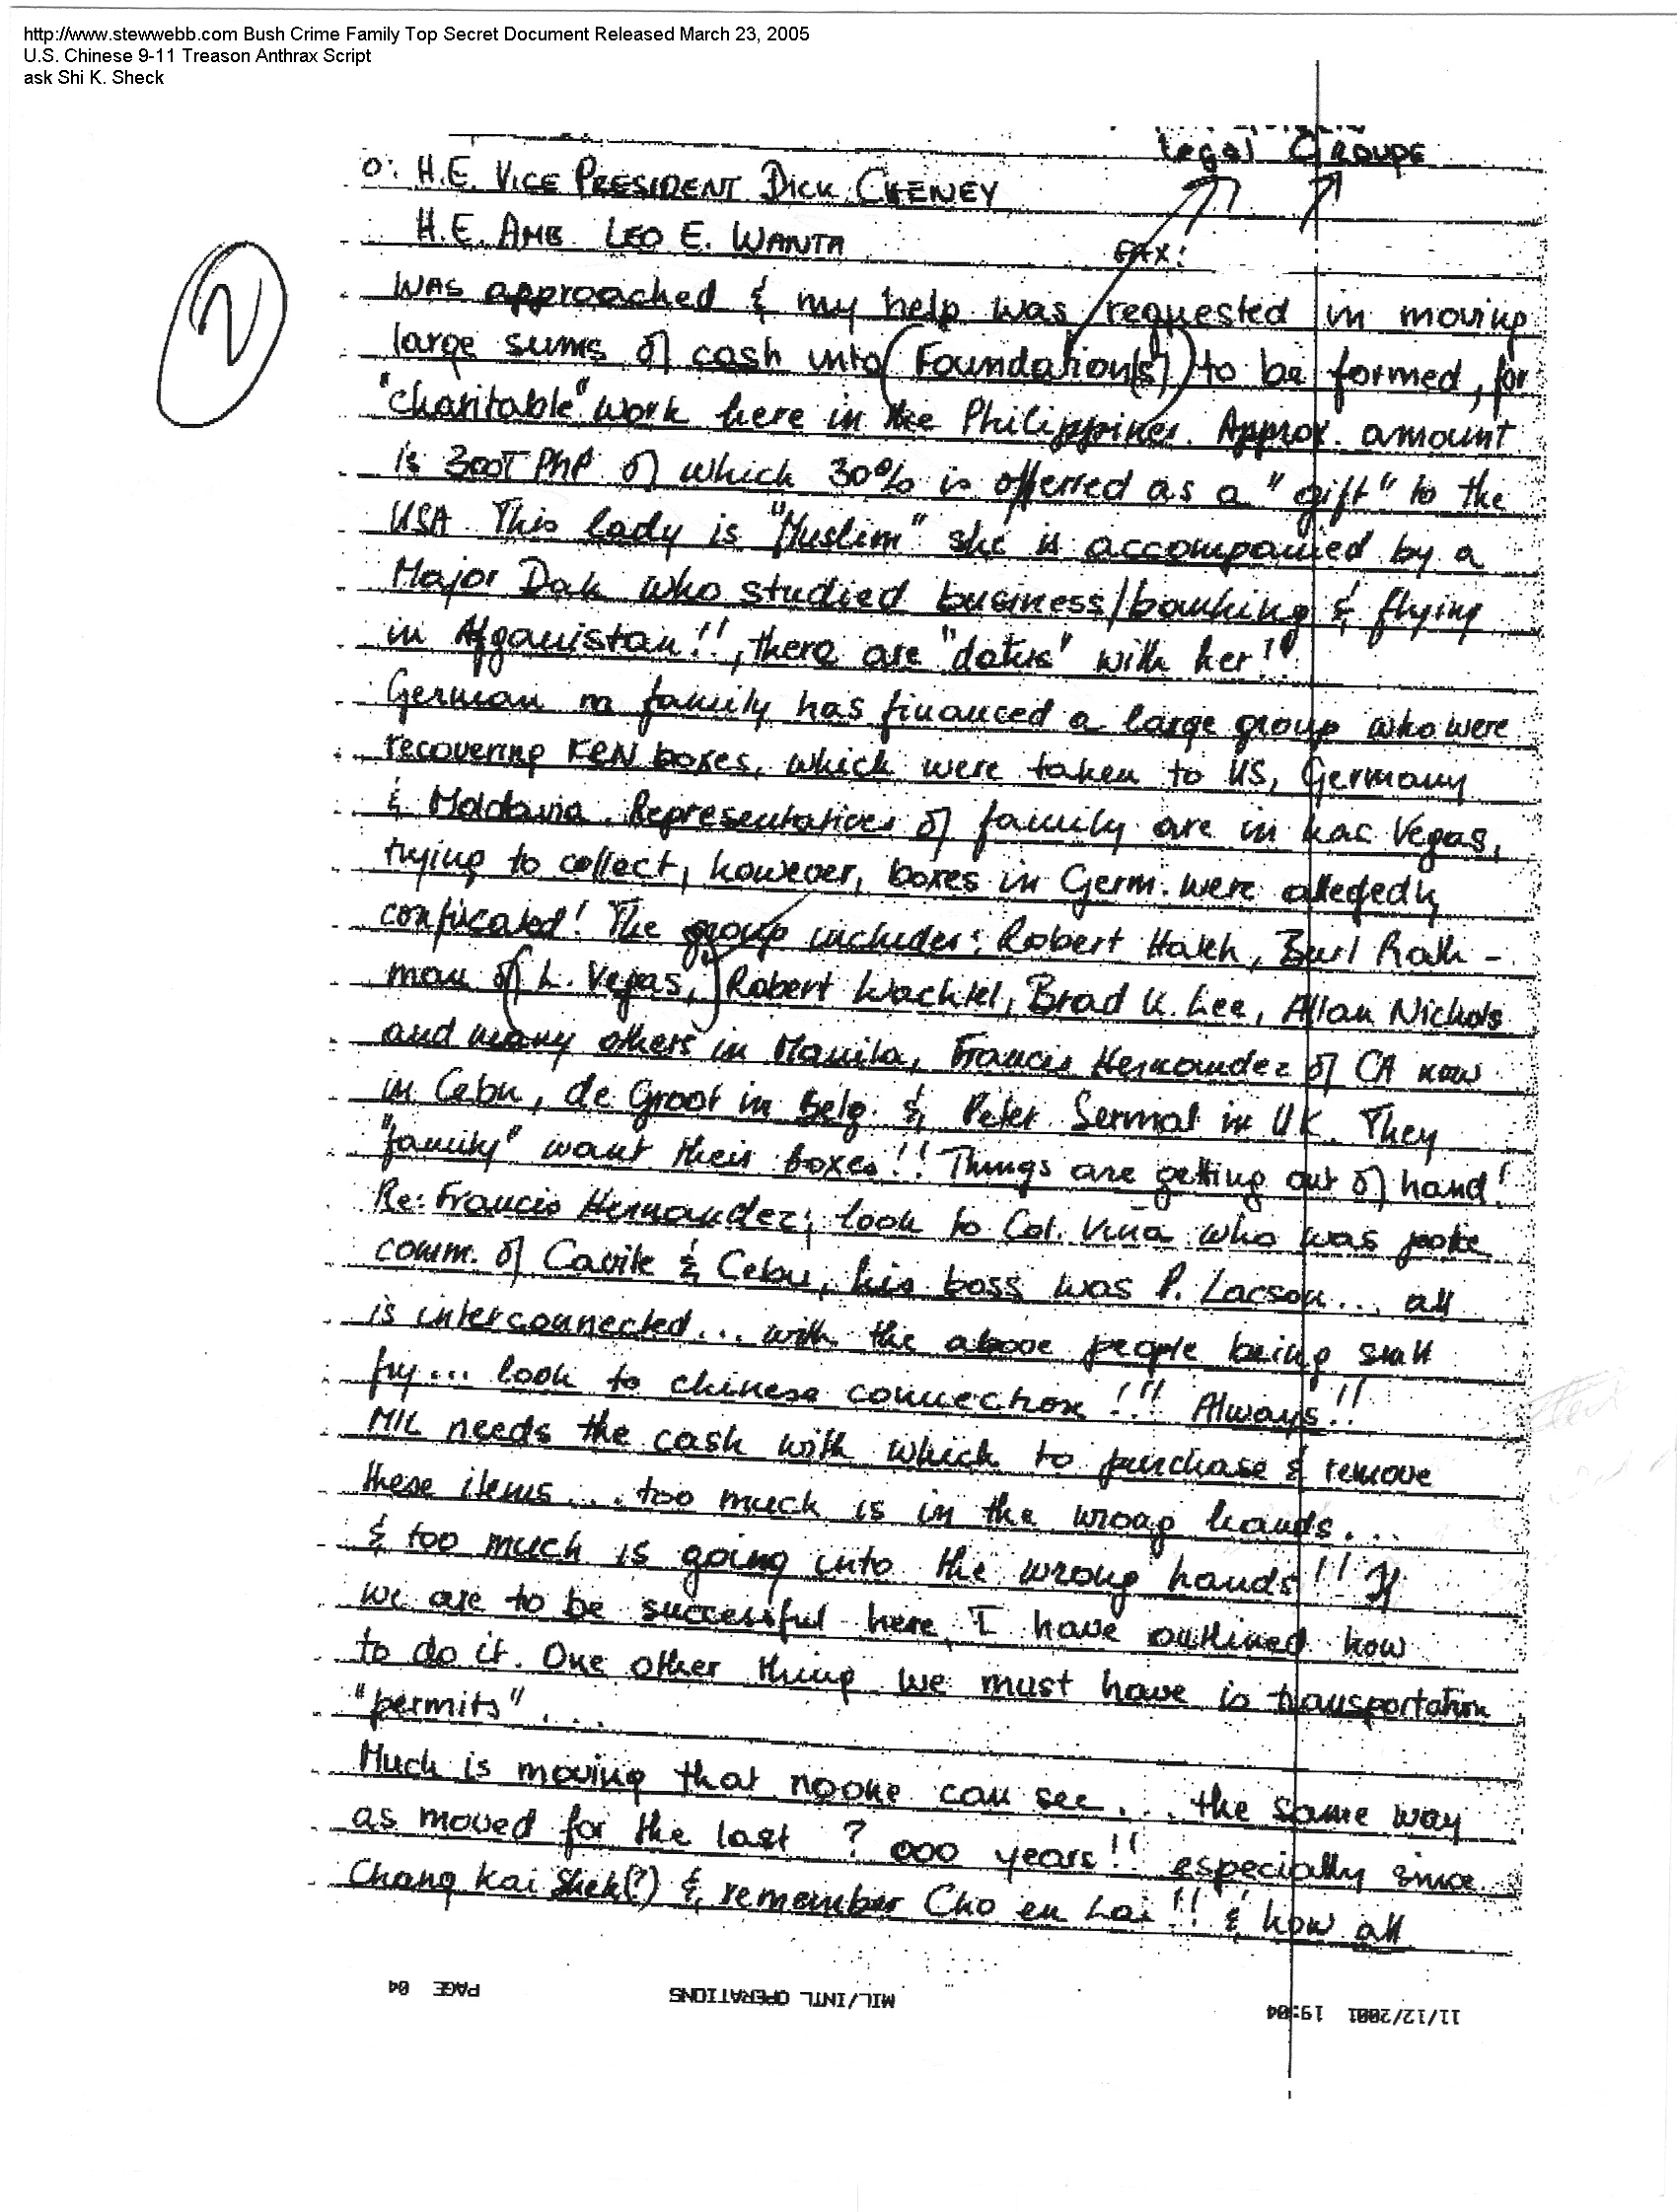 http://www.stewwebb.com Bush Crime Family Top Secret Document Released March 23, 2005
U.S. Chinese 9-11 Treason Anthrax Script
ask Shi K. Sheck
Legal GROUPS
O: H.E. VICE PRESIDENT DICK CHENEY
H.E. AMB. LEO E. WANTA
FAX:
2
WAS approached & my help was requested in moving
large sums of cash into (Foundation(s)) to be formed, for
"charitable" work here in the Philippines. Approx. amount
is 300T PhP of which 30% is offerred as a "gift" to the
USA. This lady is "Muslim" she is accompanied by a
Major Dak who studied business/banking & flying
in Afganistan!!, there are "datus" with her!!
German family has financed a large group who were
recovering FRN boxes, which were taken to US, Germany
& Moldavia. Representatives of family are in Las Vegas,
trying to collect, however, boxes in Germ. were allegedly
conficated! The group includes: Robert Hatch, Burl Rath-
man (of L. Vegas,) Robert Wachtel, Brad K. Lee, Allan Nichols
and many others in Manila, Francis Hernandez of CA now
in Cebu, de Groot in Belg. & Peter Sermat in UK. They
"family" want their boxes!! Things are getting out of hand!
Re: Francis Hernandez; look to Col. Vina who was police
comm. of Cavite & Cebu, his boss was P. Lacson... all
is interconnected... with the above people being small
fry... look to chinese connection!!! Always!!
MIL needs the cash with which to purchase & remove
these items.... too much is in the wrong hands...
& too much is going into the wrong hands!! If
we are to be successful here, I have outlined how
to do it. One other thing we must have is transportation
"permits"...
Much is moving that noone can see... the same way
as moved for the last ? 000 years!! especially since
Chang Kai Shek(?) & remember Cho en Lai!! & how all
11/12/2001 19:04 MIL/INTL OPERATIONS PAGE 04